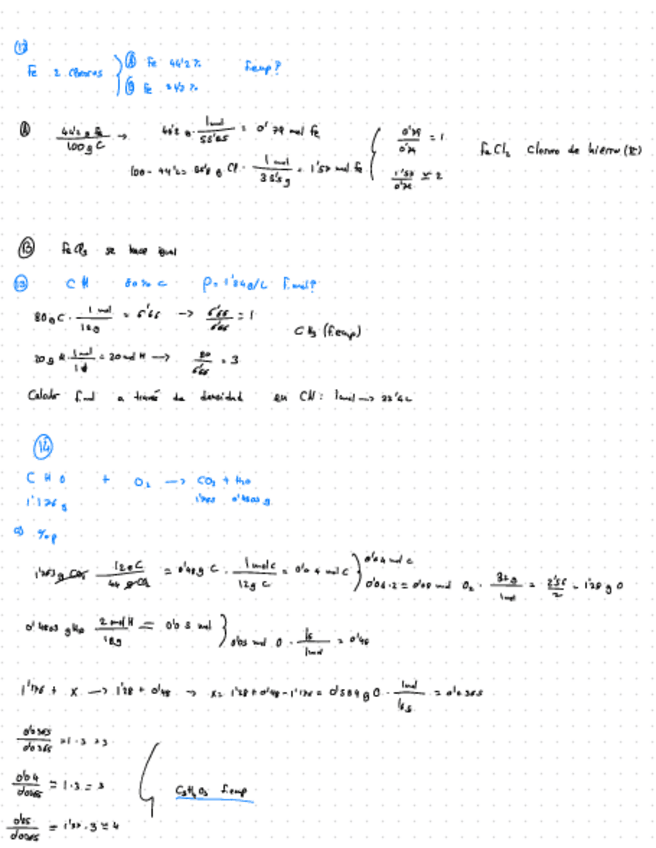 12
Fe 2 cloruros } A Fe 44'2% Femp?
B Fe 34'2%
A 44'2 g Fe / 100 g C → 44'2 g · 1 mol / 55'85 = 0'79 mol Fe { 0'79 / 0'79 = 1 FeCl2 Cloruro de hierro (II)
100 - 44'2 = 55'8 g Cl · 1 mol / 35'5 g = 1'57 mol Fe 1'57 / 0'79 ≃ 2
B FeCl3 se hace igual
13 C H 80% C ρ = 1'34 g/L F.mol?
80 g C · 1 mol / 12 g = 6'66 → 6'66 / 6'66 = 1
CH3 (F.emp)
20 g H · 1 mol / 1 g = 20 mol H → 20 / 6'66 = 3
Calculo F.mol a través de densidad en CN: 1 mol → 22'4 L
14
C H O + O2 → CO2 + H2O
1'176 g 1'763 0'4803 g
a) %p
1'763 g CO2 · 12 g C / 44 g CO2 = 0'48 g C · 1 mol C / 12 g C = 0'04 mol C } 0'04 mol C
0'04 · 2 = 0'08 mol O2 · 32 g / 1 mol = 2'56 / 2 = 1'28 g O
0'4803 g H2O 2 mol H / 18 g = 0'05 mol } 0'03 mol O · 16 / 1 mol = 0'48
1'176 + x → 1'28 + 0'48 → x = 1'28 + 0'48 - 1'176 = 0'584 g O · 1 mol / 16 g = 0'0365
0'0365 / 0'0365 = 1 · 3 = 3
0'04 / 0'0365 = 1 · 3 = 3
C3H4O3 F.emp
0'05 / 0'0365 = 1'37 · 3 ≃ 4